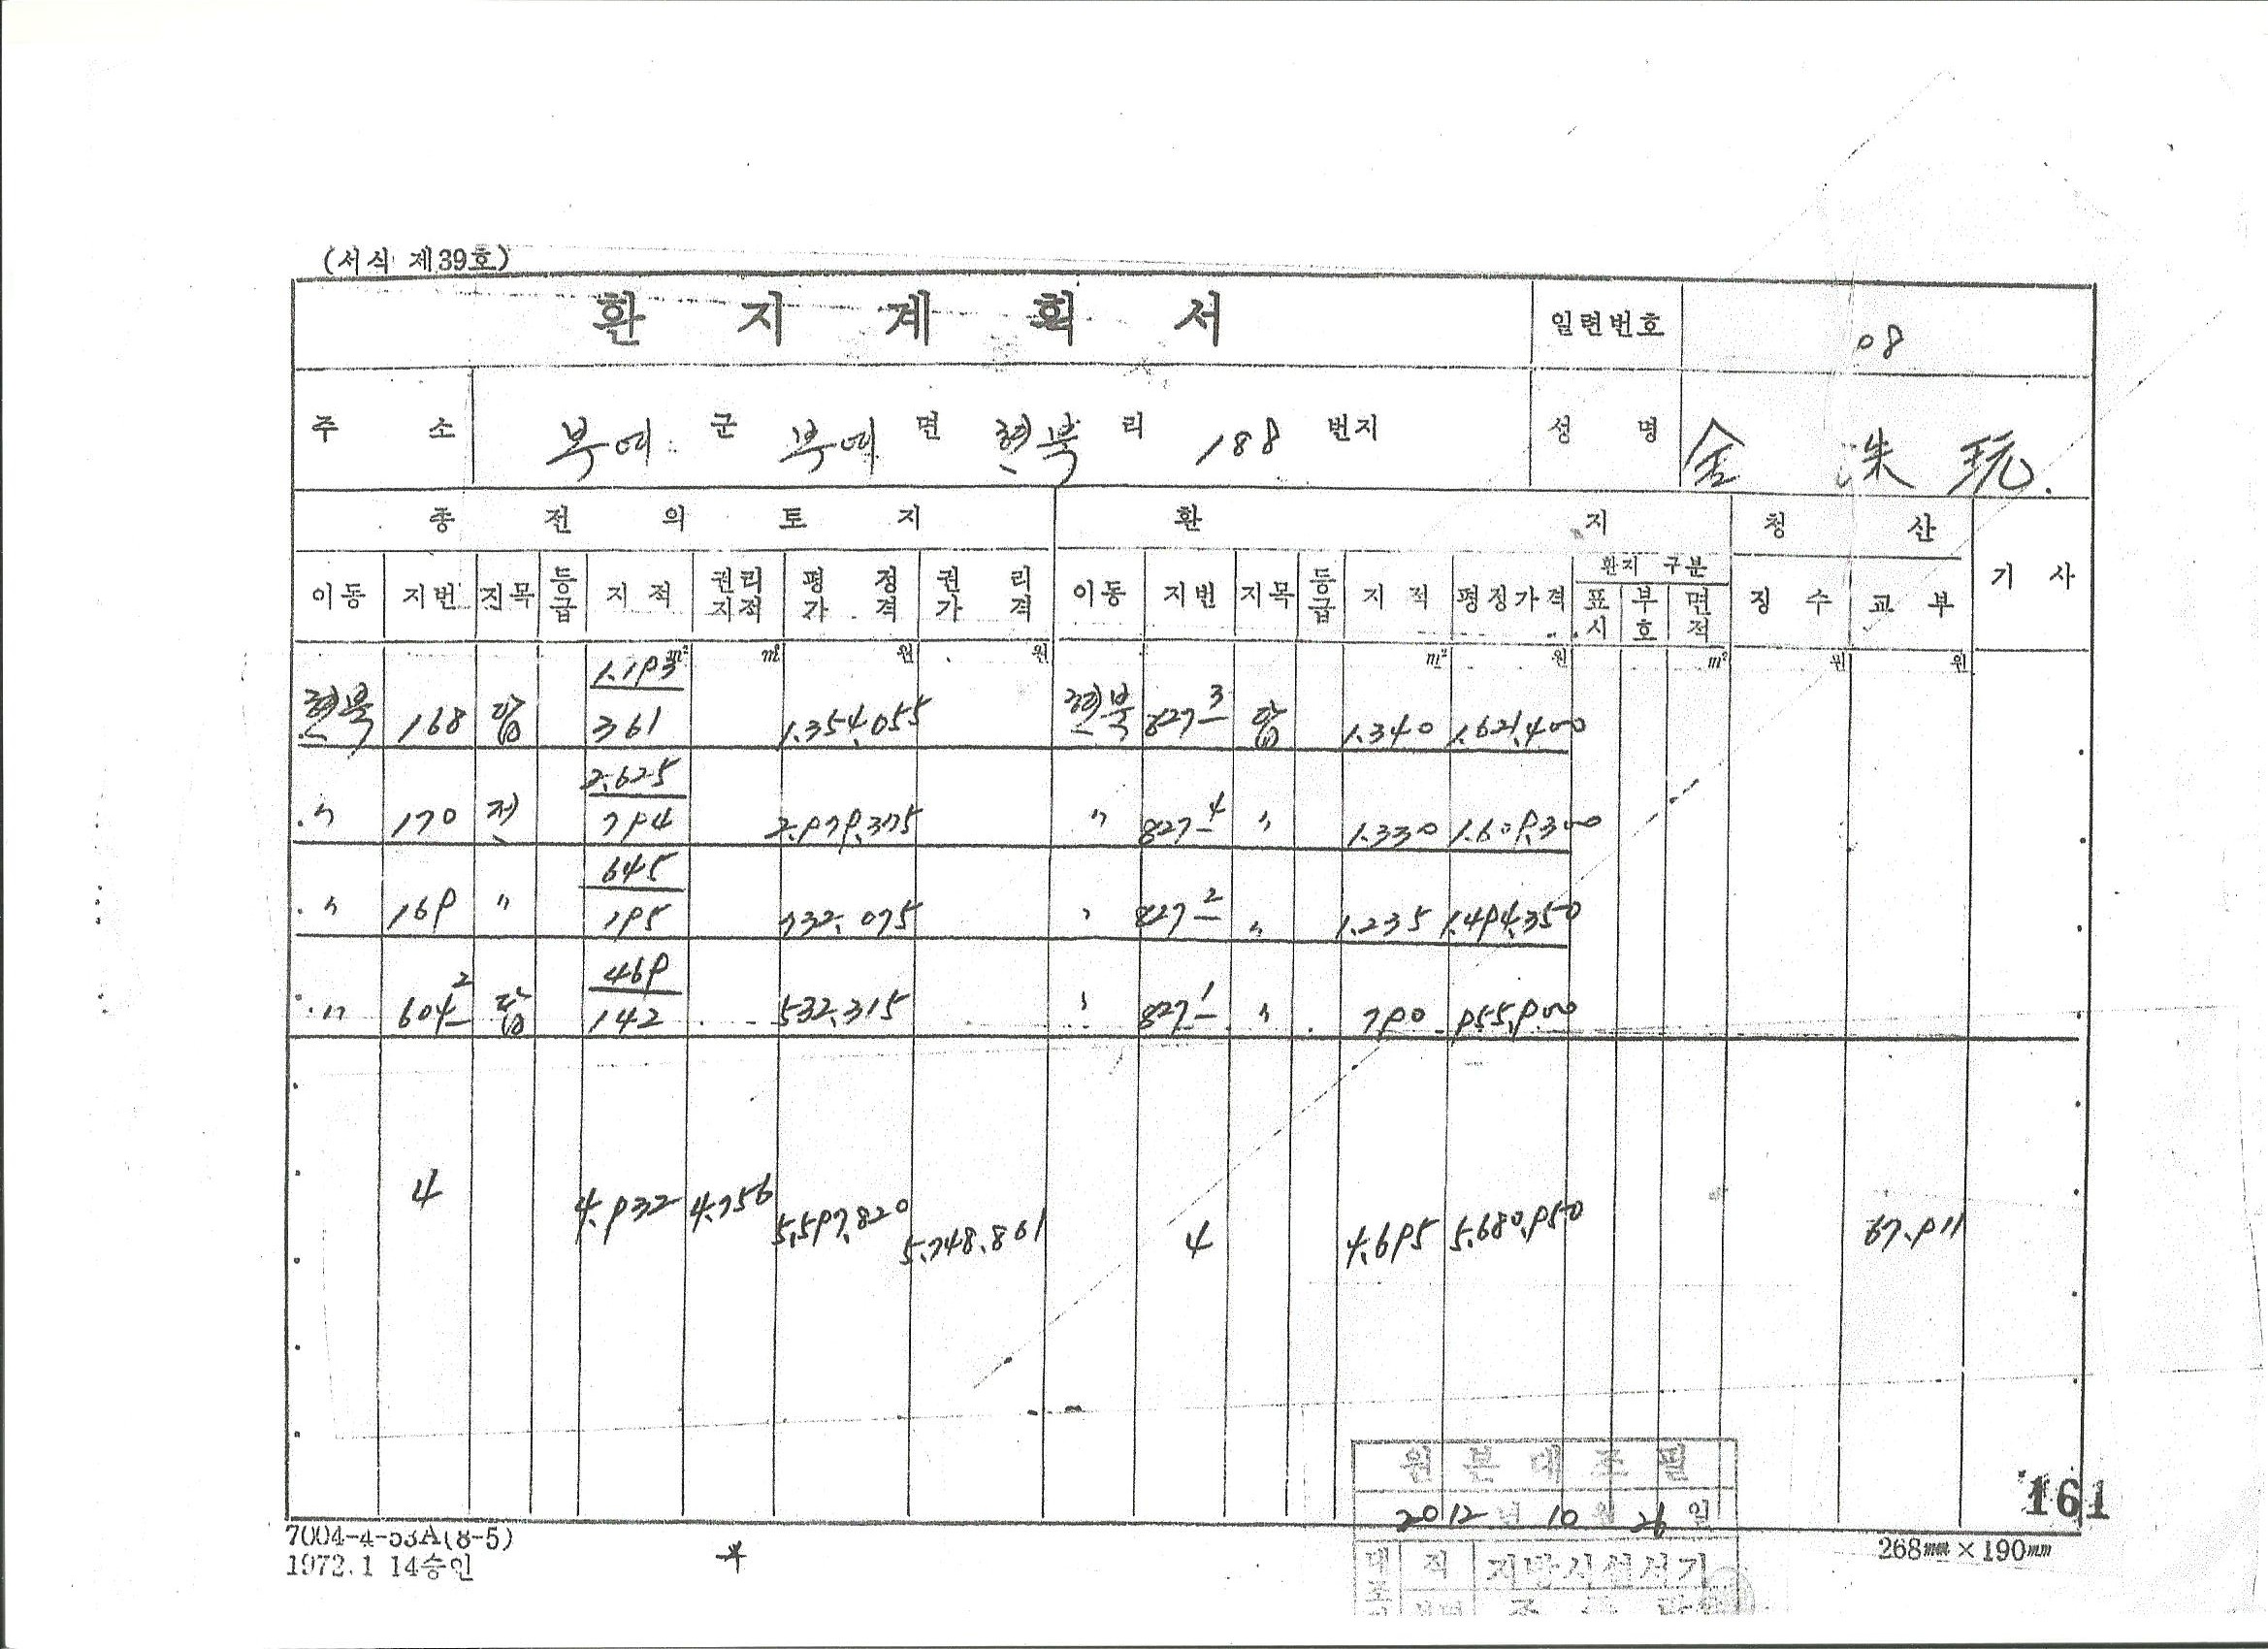 (서식 제39호)
환 지 계 획 서 일련번호 08
주 소 부여 군 부여 면 현북 리 188 번지 성 명 金 洙 玩
종 전 의 토 지 환 지 청 산 기 사
이동 지번 지목 등급 지적 권리지적 평정가격 권리가격 이동 지번 지목 등급 지적 평정가격 환지 구분 표시 부호 면적 징수 교부
m² m² 원 원 m² 원 m² 원 원
1.193
현북 168 답 361 1.354.055 현북 827-3 답 1.340 1.621.400
2.625
〃 170 전 794 2.979.375 〃 827-4 〃 1.330 1.609.300
645
〃 169 〃 195 732.075 〃 827-2 〃 1.235 1.494.350
469
〃 604-2 답 142 532.315 〃 827-1 〃 790 955.900
4 4.932 4.756 5.597.820 5.748.861 4 4.695 5.680.950 67.911
원 본 대 조 필
2012 년 10 월 26 일
직 지방시설서기
161
7004-4-53A(8-5)
1972.1 14승인
268㎜×190㎜